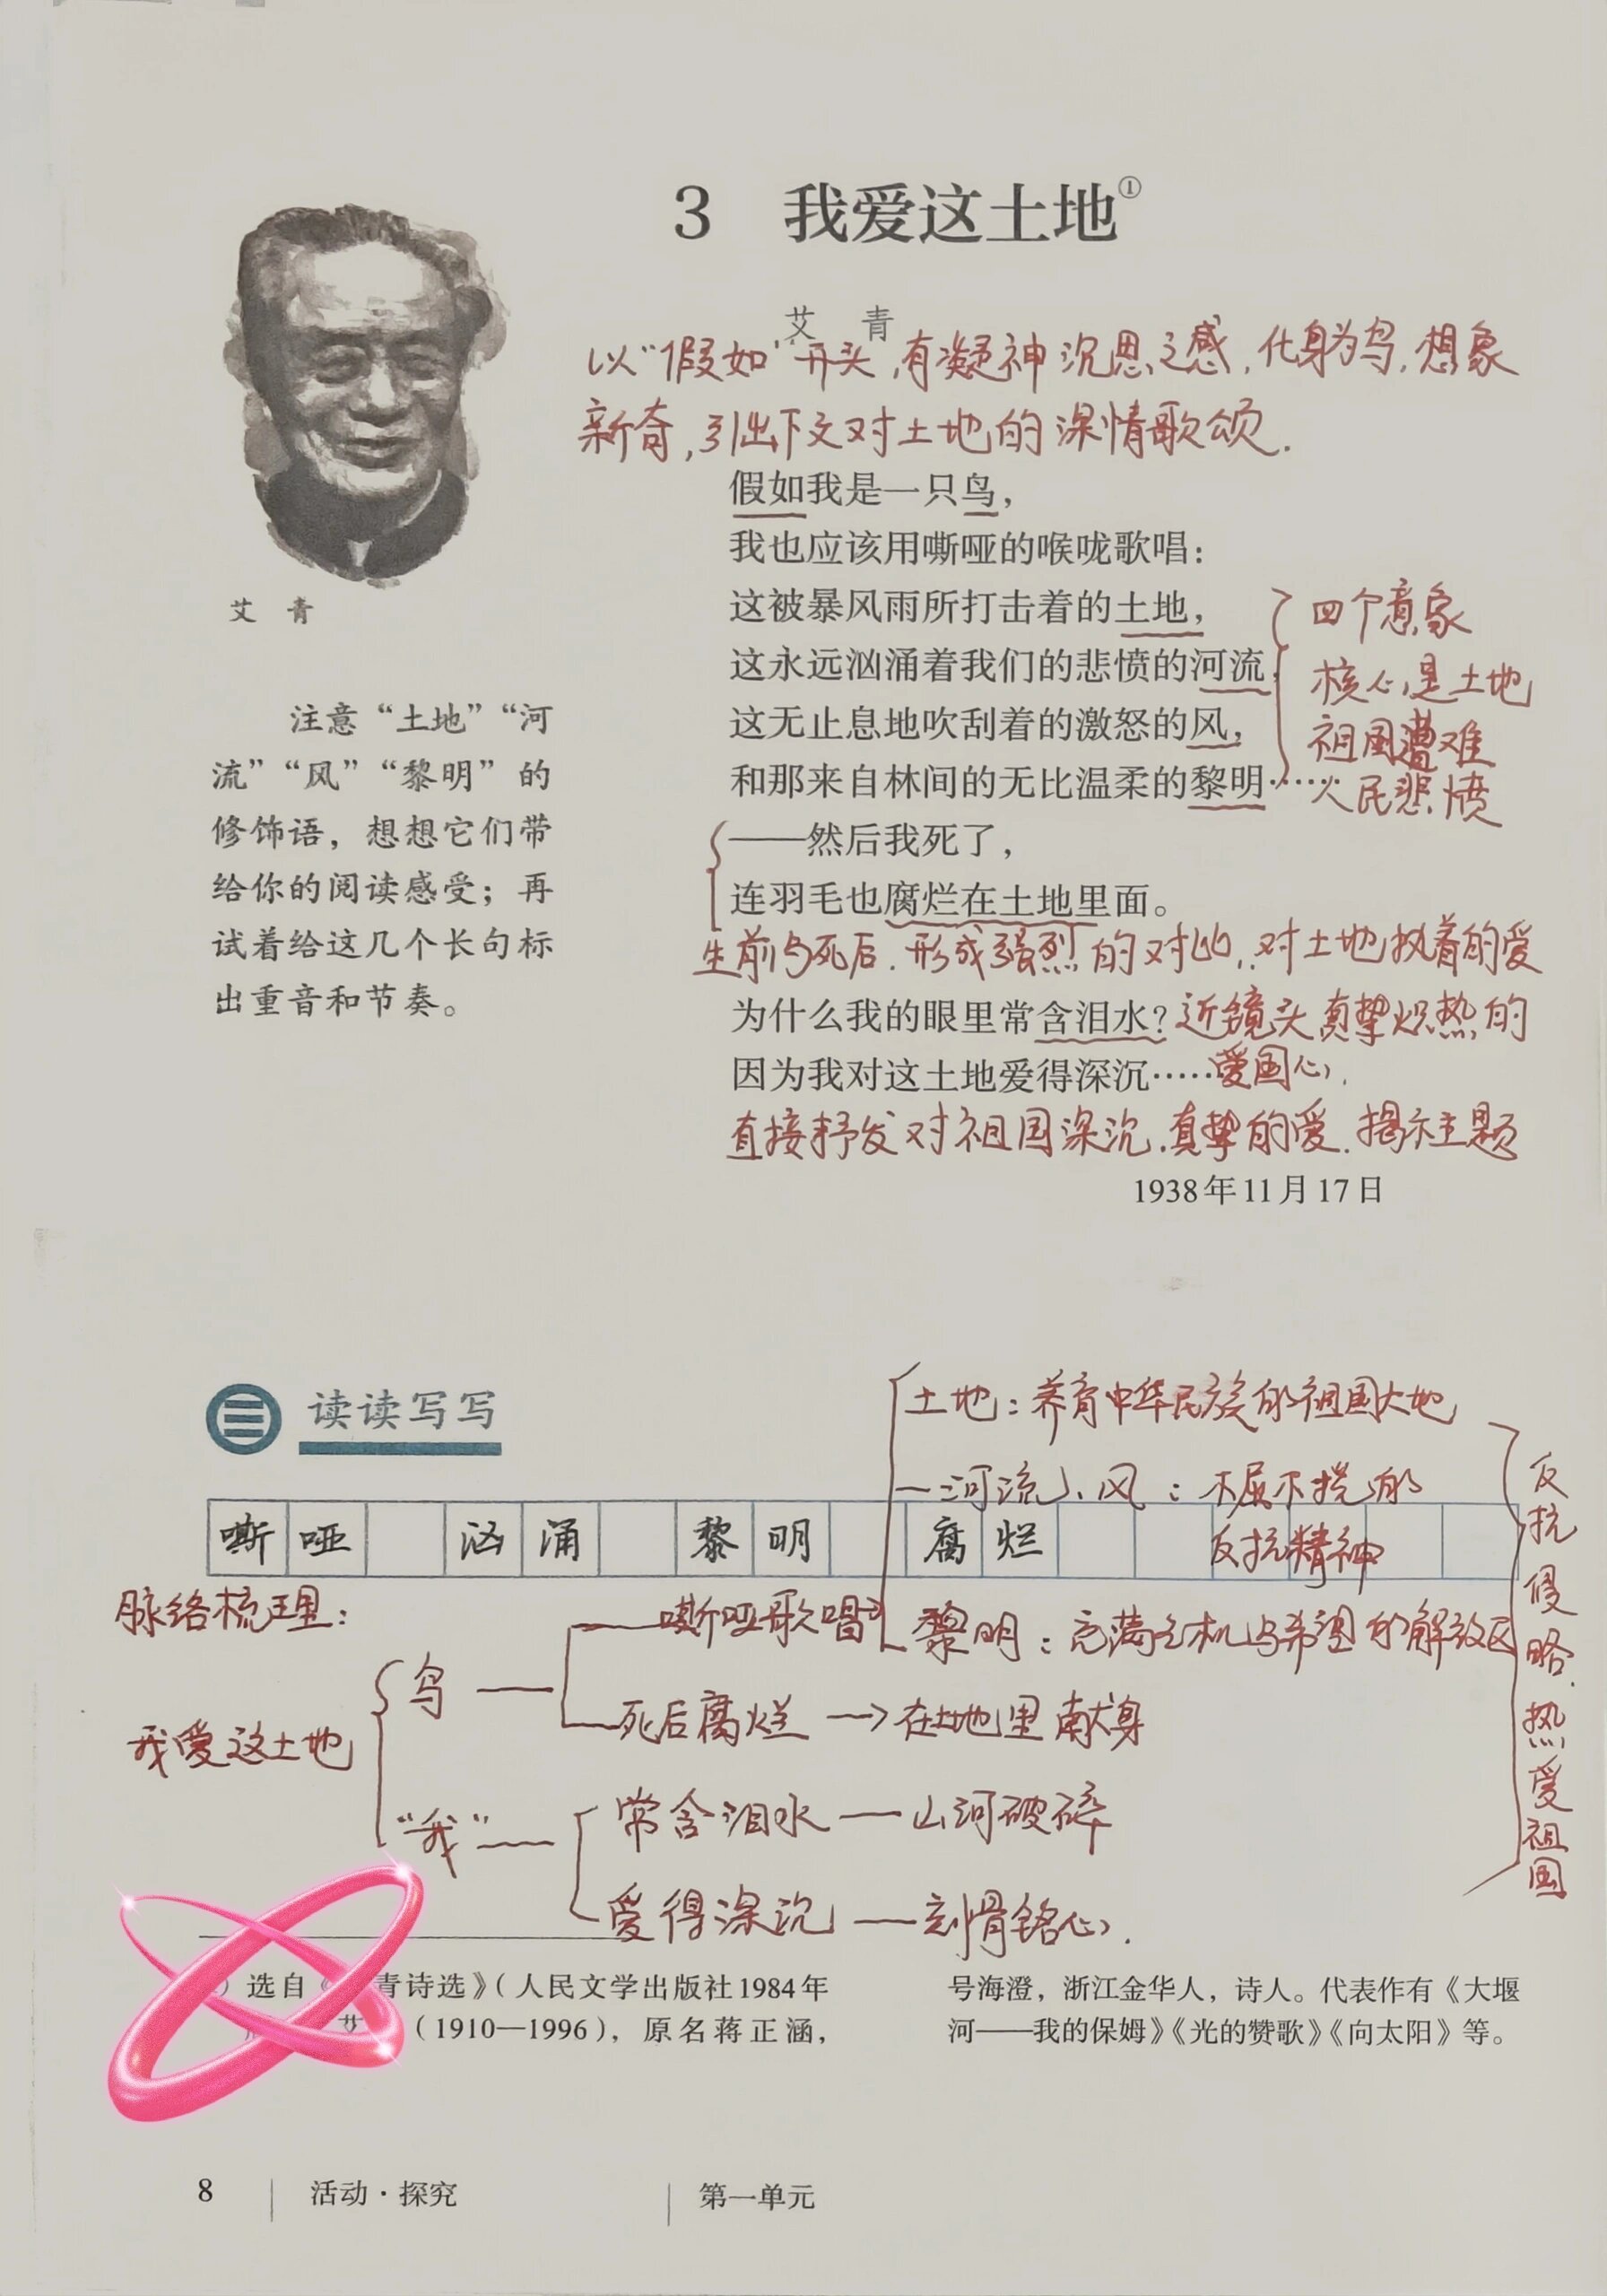 3 我爱这土地①
艾 青
以“假如”开头,有凝神沉思之感,化身为鸟,想象
新奇,引出下文对土地的深情歌颂.
假如我是一只鸟,
我也应该用嘶哑的喉咙歌唱:
这被暴风雨所打击着的土地,
这永远汹涌着我们的悲愤的河流,
这无止息地吹刮着的激怒的风,
和那来自林间的无比温柔的黎明……
四个意象
核心是土地
祖国遭难
人民悲愤
——然后我死了,
连羽毛也腐烂在土地里面。
生前与死后.形成强烈的对比,对土地执着的爱
为什么我的眼里常含泪水?近镜头真挚炽热的
因为我对这土地爱得深沉……爱国心.
直接抒发对祖国深沉.真挚的爱.揭示主题
1938年11月17日
艾 青
注意“土地”“河
流”“风”“黎明”的
修饰语,想想它们带
给你的阅读感受;再
试着给这几个长句标
出重音和节奏。
读读写写
嘶哑 汹涌 黎明 腐烂
脉络梳理:
我爱这土地
鸟
嘶哑歌唱
土地:养育中华民族的祖国大地
河流、风:不屈不挠的
反抗精神
黎明:充满生机与希望的解放区
死后腐烂→在土地里献身
“我”
常含泪水—山河破碎
爱得深沉—刻骨铭心.
反抗侵略.热爱祖国
选自《 青诗选》(人民文学出版社1984年
(1910—1996),原名蒋正涵,
号海澄,浙江金华人,诗人。代表作有《大堰
河——我的保姆》《光的赞歌》《向太阳》等。
8 活动·探究 第一单元